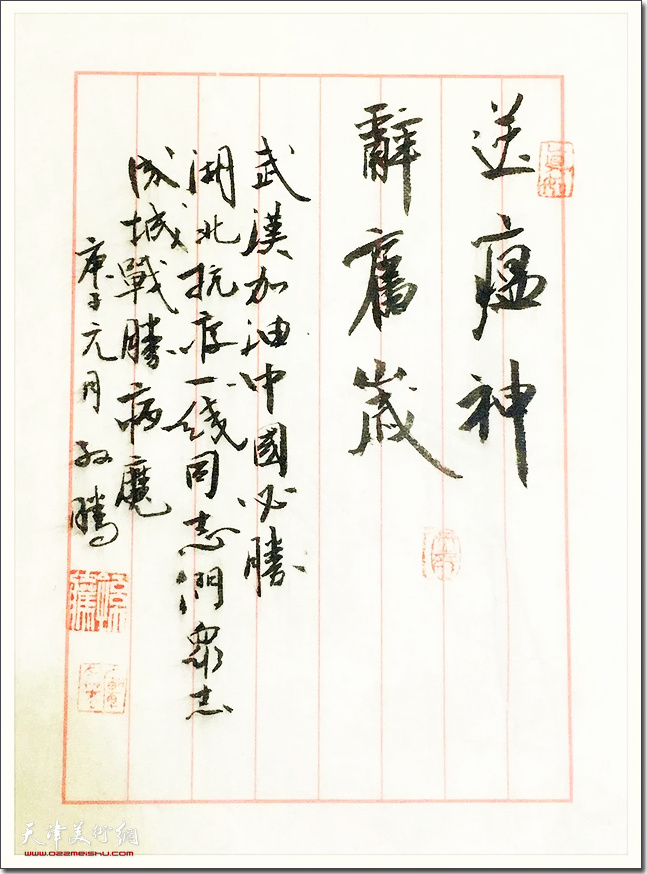 送瘟神
辭舊歲
武漢加油中國必勝
湖北抗疫一綫同志們眾志
成城戰勝病魔
庚子元月 孙騰
天津美術網
www.022meishu.com